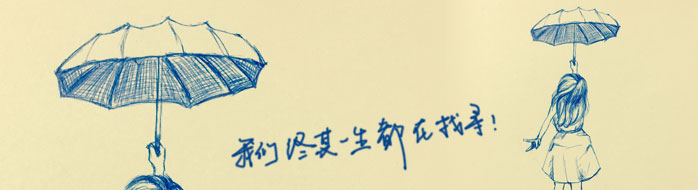 我们终其一生都在找寻！